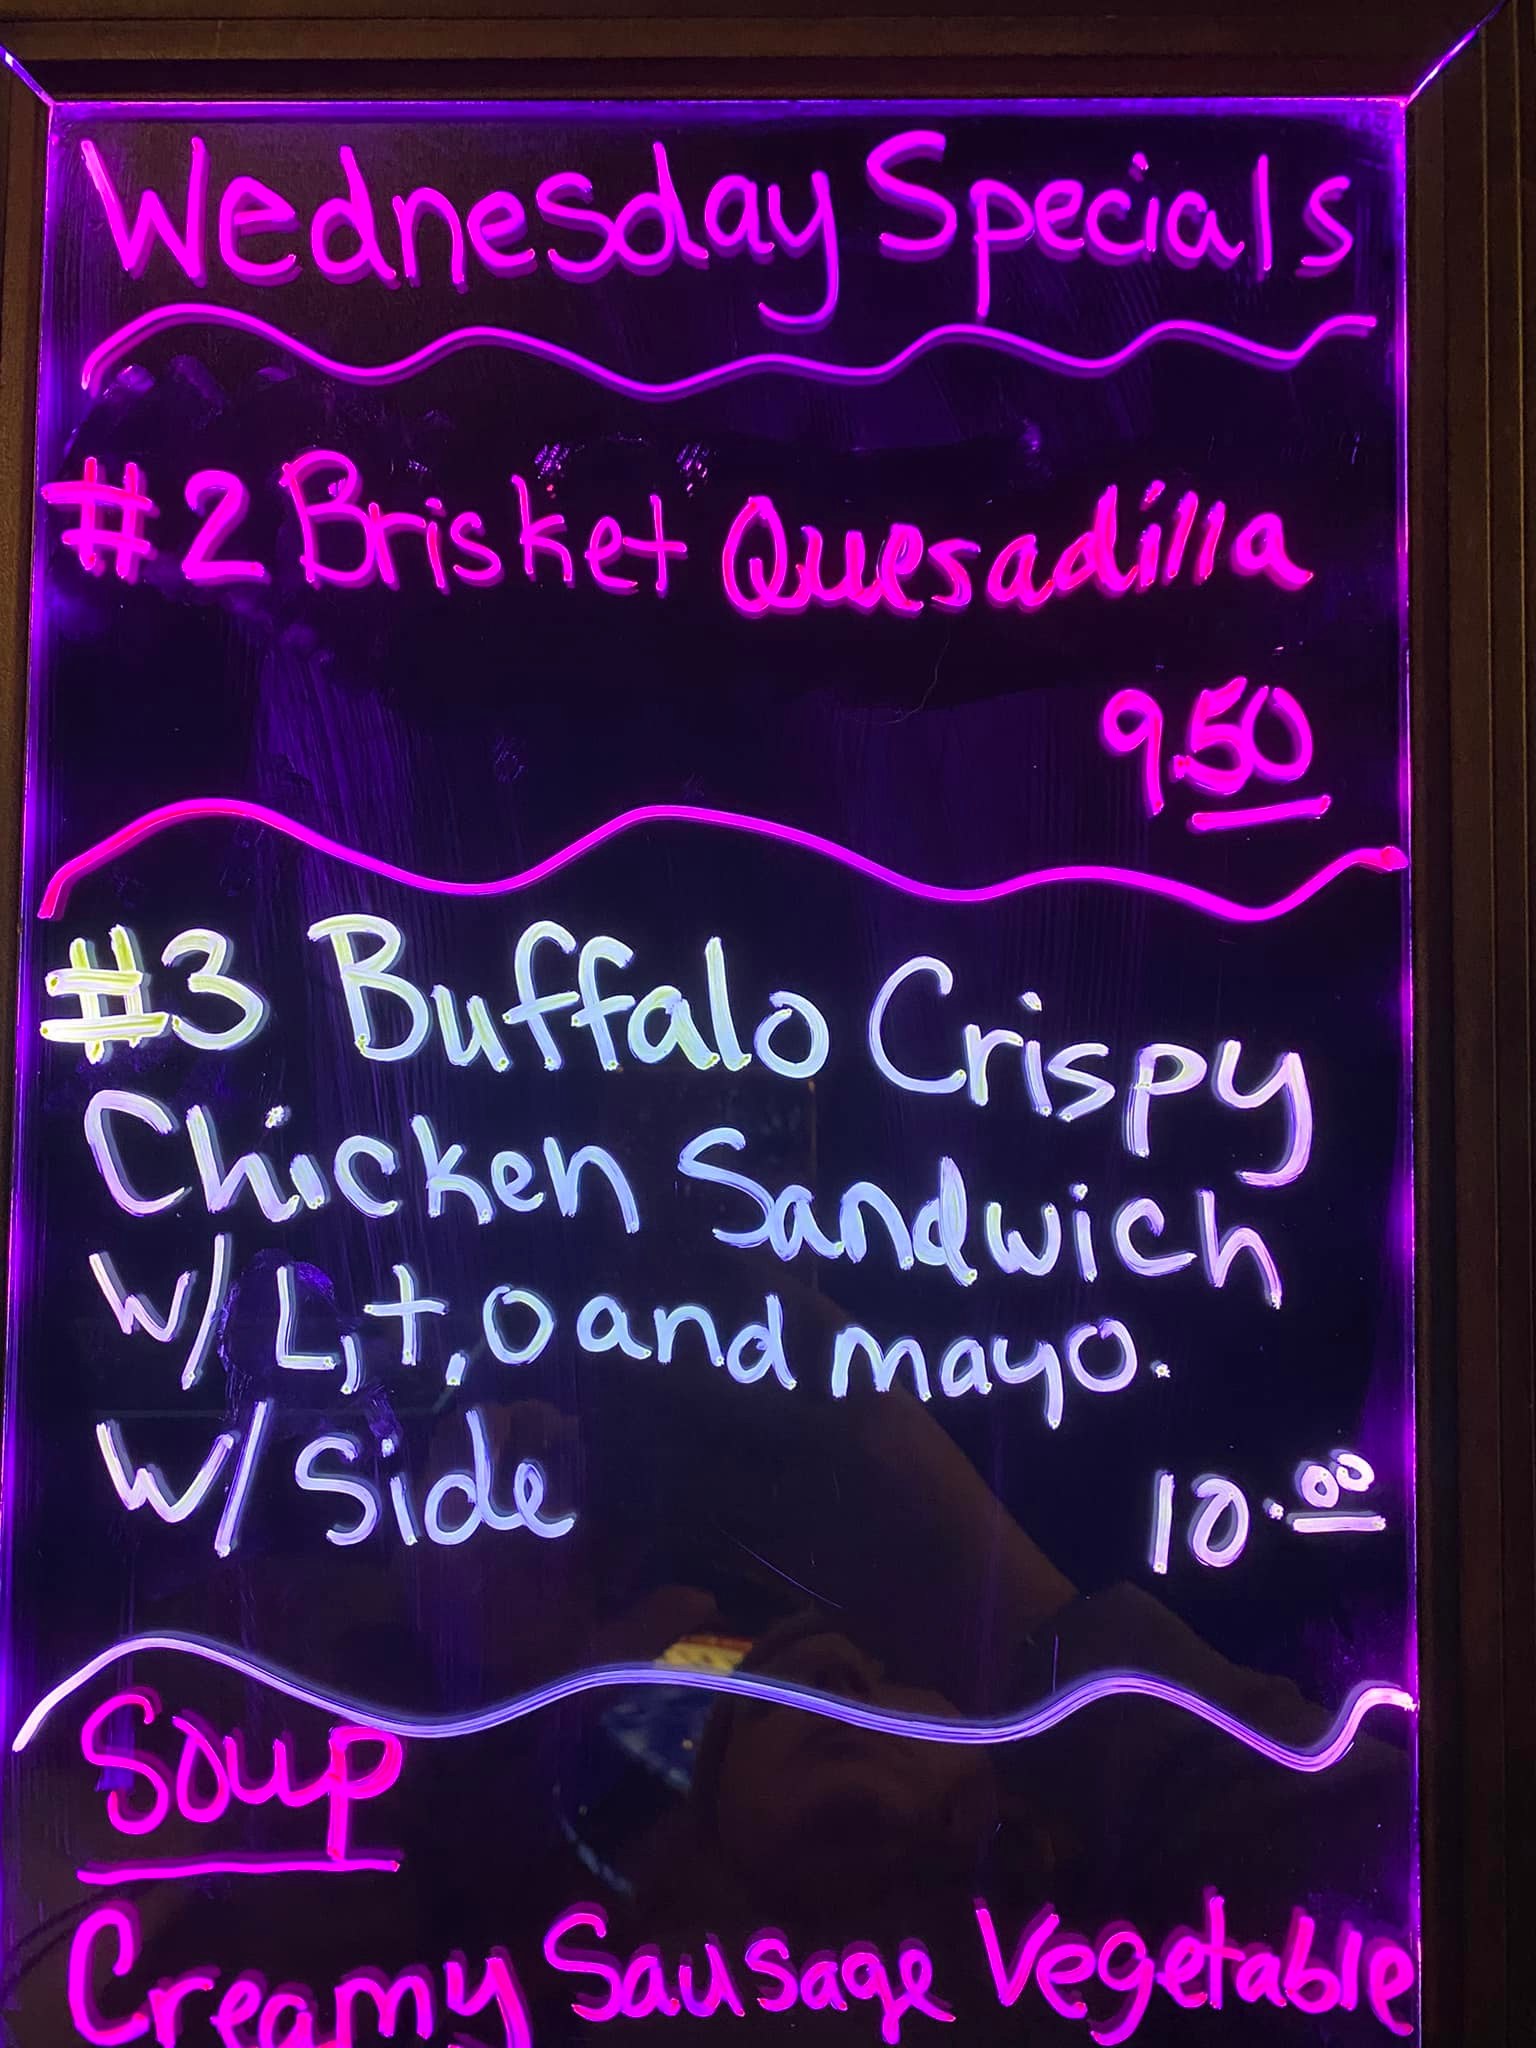 Wednesday Specials
#2 Brisket Quesadilla
9.50
#3 Buffalo Crispy
Chicken Sandwich
W/ L, t, o and mayo.
W/ Side
10.00
Soup
Creamy Sausage Vegetable